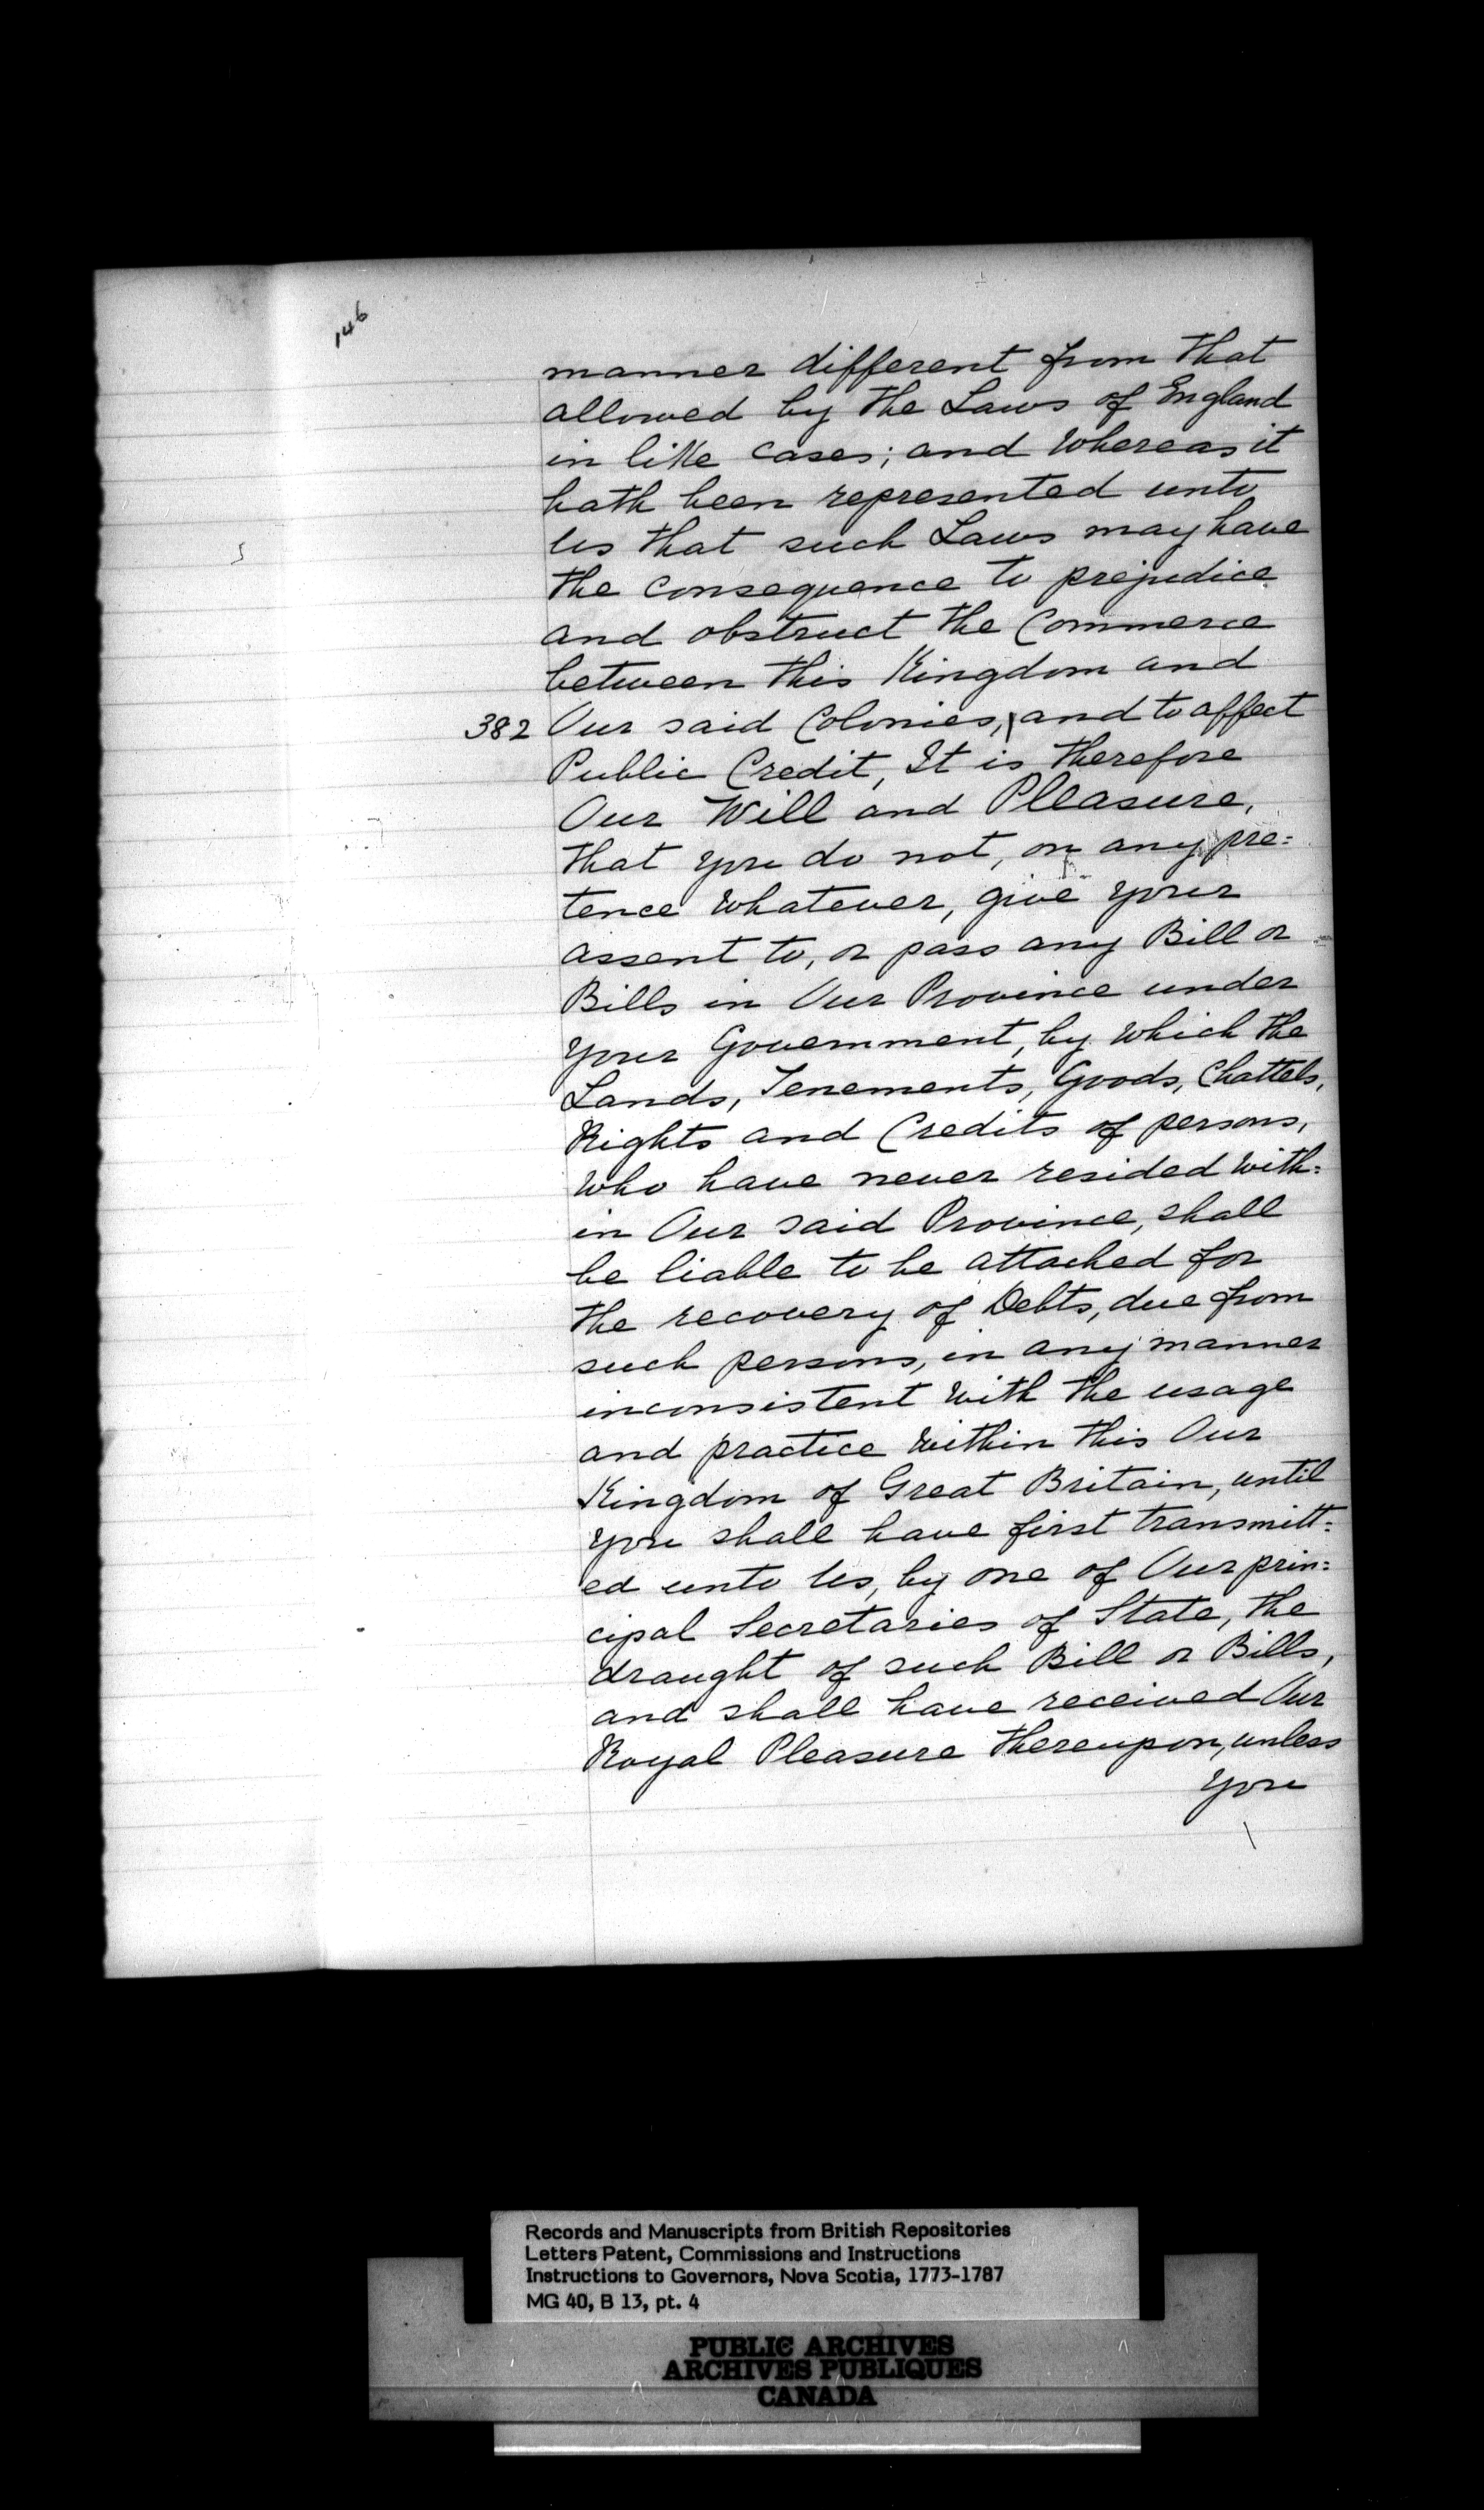 146
manner different from that
allowed by the Laws of England
in like cases; and Whereas it
hath been represented unto
Us that such Laws may have
the consequence to prejudice
and obstruct the Commerce
between this Kingdom and
382 Our said Colonies, \ and to affect
Public Credit, It is therefore
Our Will and Pleasure,
that you do not, on any pre=
tence whatever, give your
assent to, or pass any Bill or
Bills in Our Province under
your Government, by which the
Lands, Tenements, Goods, Chattels,
Rights and Credits of persons,
who have never resided with=
in Our said Province, shall
be liable to be attached for
the recovery of Debts, due from
such persons, in any manner
inconsistent with the usage
and practice within this Our
Kingdom of Great Britain, until
you shall have first transmitt=
ed unto Us, by one of Our prin=
cipal Secretaries of State, the
draught of such Bill or Bills,
and shall have received Our
Royal Pleasure thereupon, unless
you
Records and Manuscripts from British Repositories
Letters Patent, Commissions and Instructions
Instructions to Governors, Nova Scotia, 1773-1787
MG 40, B 13, pt. 4
PUBLIC ARCHIVES
ARCHIVES PUBLIQUES
CANADA